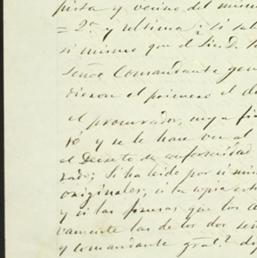 pista y vecino del mism
= 2ª y ultima: si sabe
si mismo que el Sin D.
Señor Comandante gen
dieron el primero el d
el procurador, muy a fin
ró y se le hace ver al
el Decreto de conformidad
Si ha leido por si mism
originales, si la copia est
y si las firmas que los a
vamente las de los dos señ
y comandante gral.